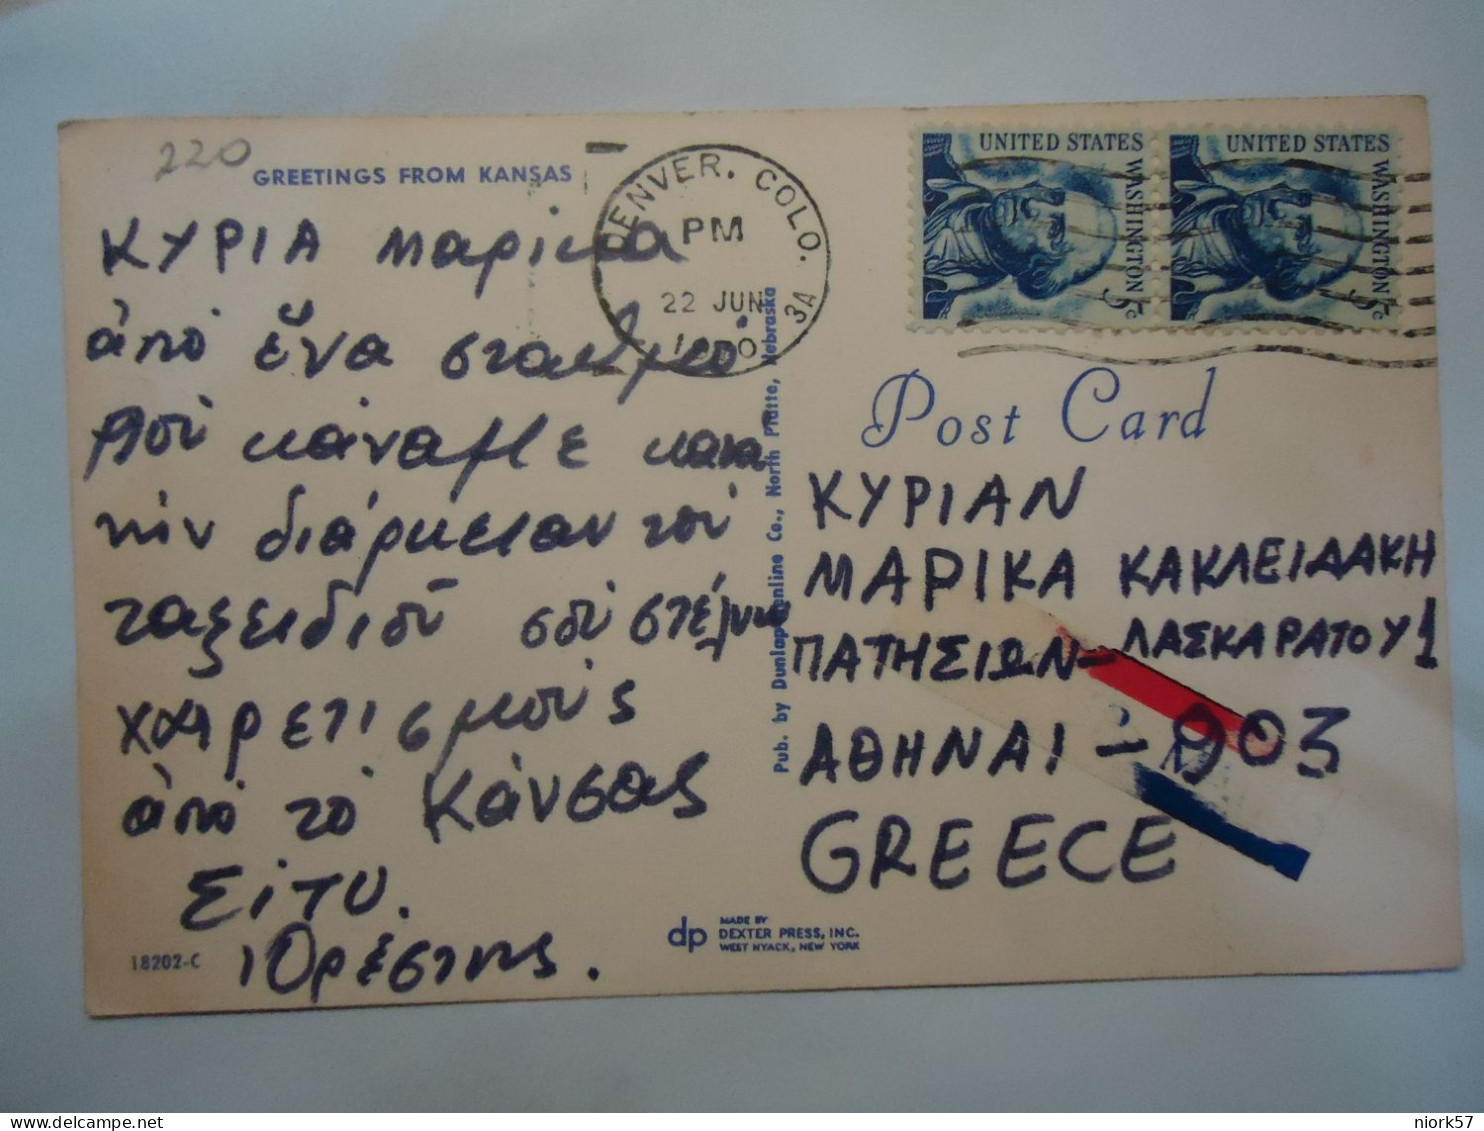 220
GREETINGS FROM KANSAS
ΚΥΡΙΑ Μαρίκα
ἀπό ἕνα σταθμό
ποὺ κάναμε κατα
τήν διάρκειαν τοῦ
ταξειδιοῦ σοῦ στέλνω
χαιρετισμούς
ἀπό τό Κάνσας
Σίτυ.
Ὀρέστης.
18202-C
DENVER, COLO.
PM
22 JUN
3A
UNITED STATES
WASHINGTON
5c
UNITED STATES
WASHINGTON
5c
Post Card
Pub. by Dunlap-Henline Co., North Platte, Nebraska
ΚΥΡΙΑΝ
ΜΑΡΙΚΑ ΚΑΚΛΕΙΔΑΚΗ
ΠΑΤΗΣΙΩΝ - ΛΑΣΚΑΡΑΤΟΥ 1
ΑΘΗΝΑΙ - 903
GREECE
dp MADE BY
DEXTER PRESS, INC.
WEST NYACK, NEW YORK
niork57